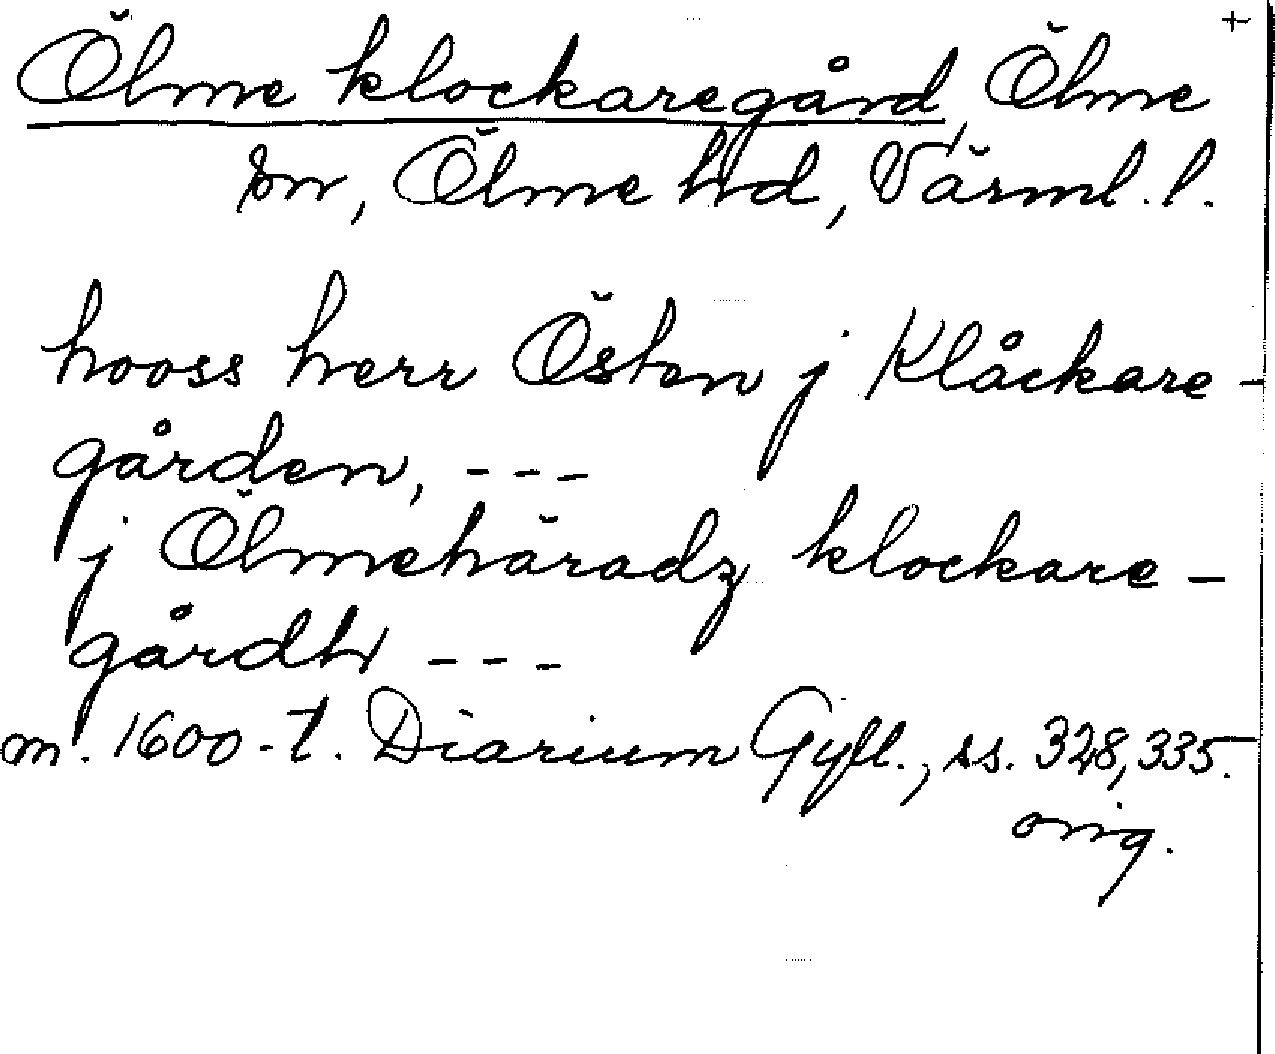 +
Ölme klockaregård, Ölme
sn, Ölme hd, Värml. l.
hooss herr Östen j Klåckare-
gården, ---
j Ölmehäradz klockare-
gårdh ---
m. 1600-t. Diarium Gyll., ss. 328, 335.
orig.